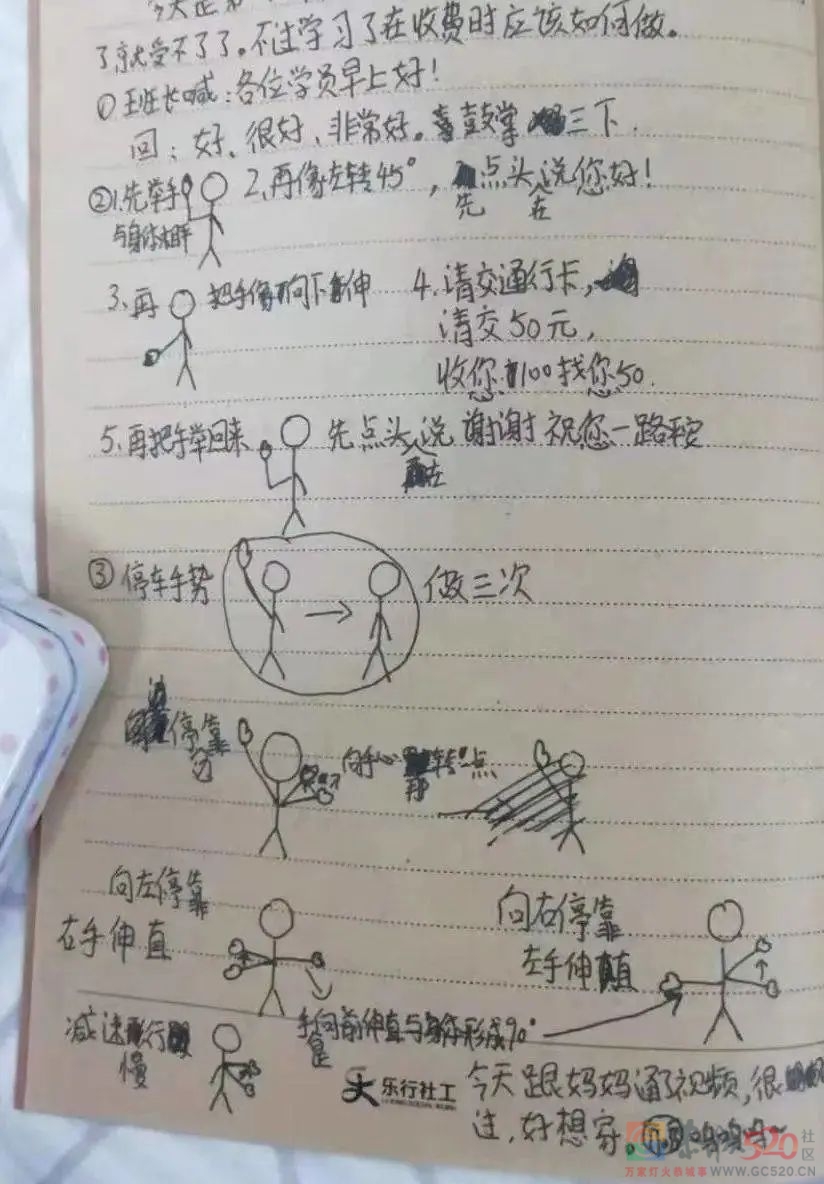 了,就受不了了。不过学习了在收费时应该如何做。
①班长喊:各位学员早上好!
回:好、很好、非常好。鼓掌三下.
②1.先举手 2.再像左转45°,点头说您好!
与身体水平 先 在
3、再 把手 向下伸 4.请交通行卡,
请交50元,
收您100找您50.
5、再把手举回来 先点头说 谢谢 祝您一路平安
在
③停车手势 做三次
停靠
边
向手心 转 点
向左停靠
右手伸直
向右停靠
左手伸直
减速行
慢
手向前伸直与身体形成90°
是
乐行社工
今天跟妈妈通了视频,很
好想家。
社区
万家灯火
WWW.GC520.CN